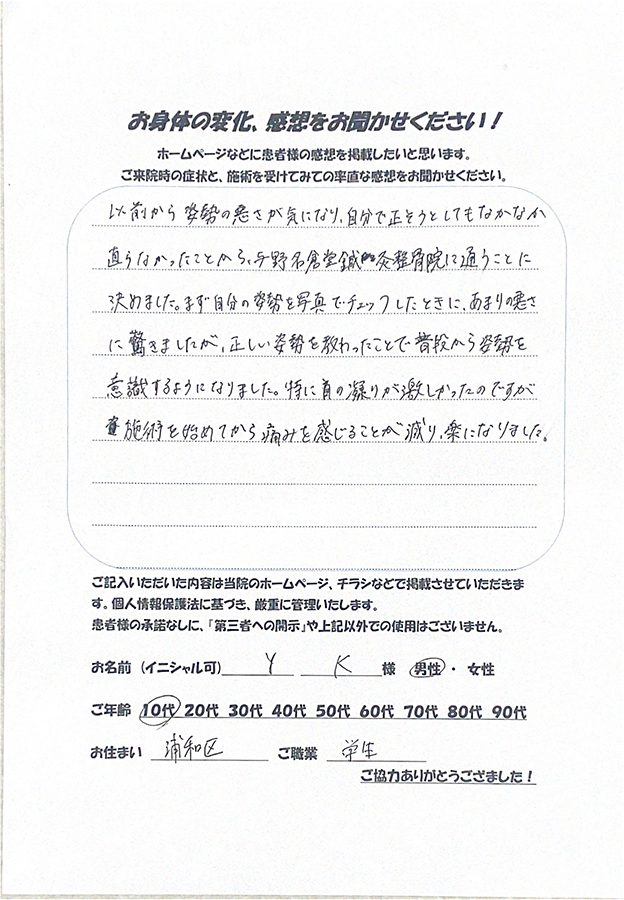 お身体の変化、感想をお聞かせください！
ホームページなどに患者様の感想を掲載したいと思います。
ご来院時の症状と、施術を受けてみての率直な感想をお聞かせください。
以前から姿勢の悪さが気になり、自分で正そうとしてもなかなか
直らなかったことから、与野名倉堂鍼灸整骨院に通うことに
決めました。まず自分の姿勢を写真でチェックしたときに、あまりの悪さ
に驚きましたが、正しい姿勢を教わったことで普段から姿勢を
意識するようになりました。特に首の凝りが激しかったのですが
施術を始めてから痛みを感じることが減り、楽になりました。
ご記入いただいた内容は当院のホームページ、チラシなどで掲載させていただきま
す。個人情報保護法に基づき、厳重に管理いたします。
患者様の承諾なしに、「第三者への開示」や上記以外での使用はございません。
お名前（イニシャル可） Y K 様 男性・女性
ご年齢 10代 20代 30代 40代 50代 60代 70代 80代 90代
お住まい 浦和区 ご職業 学生
ご協力ありがとうござました！